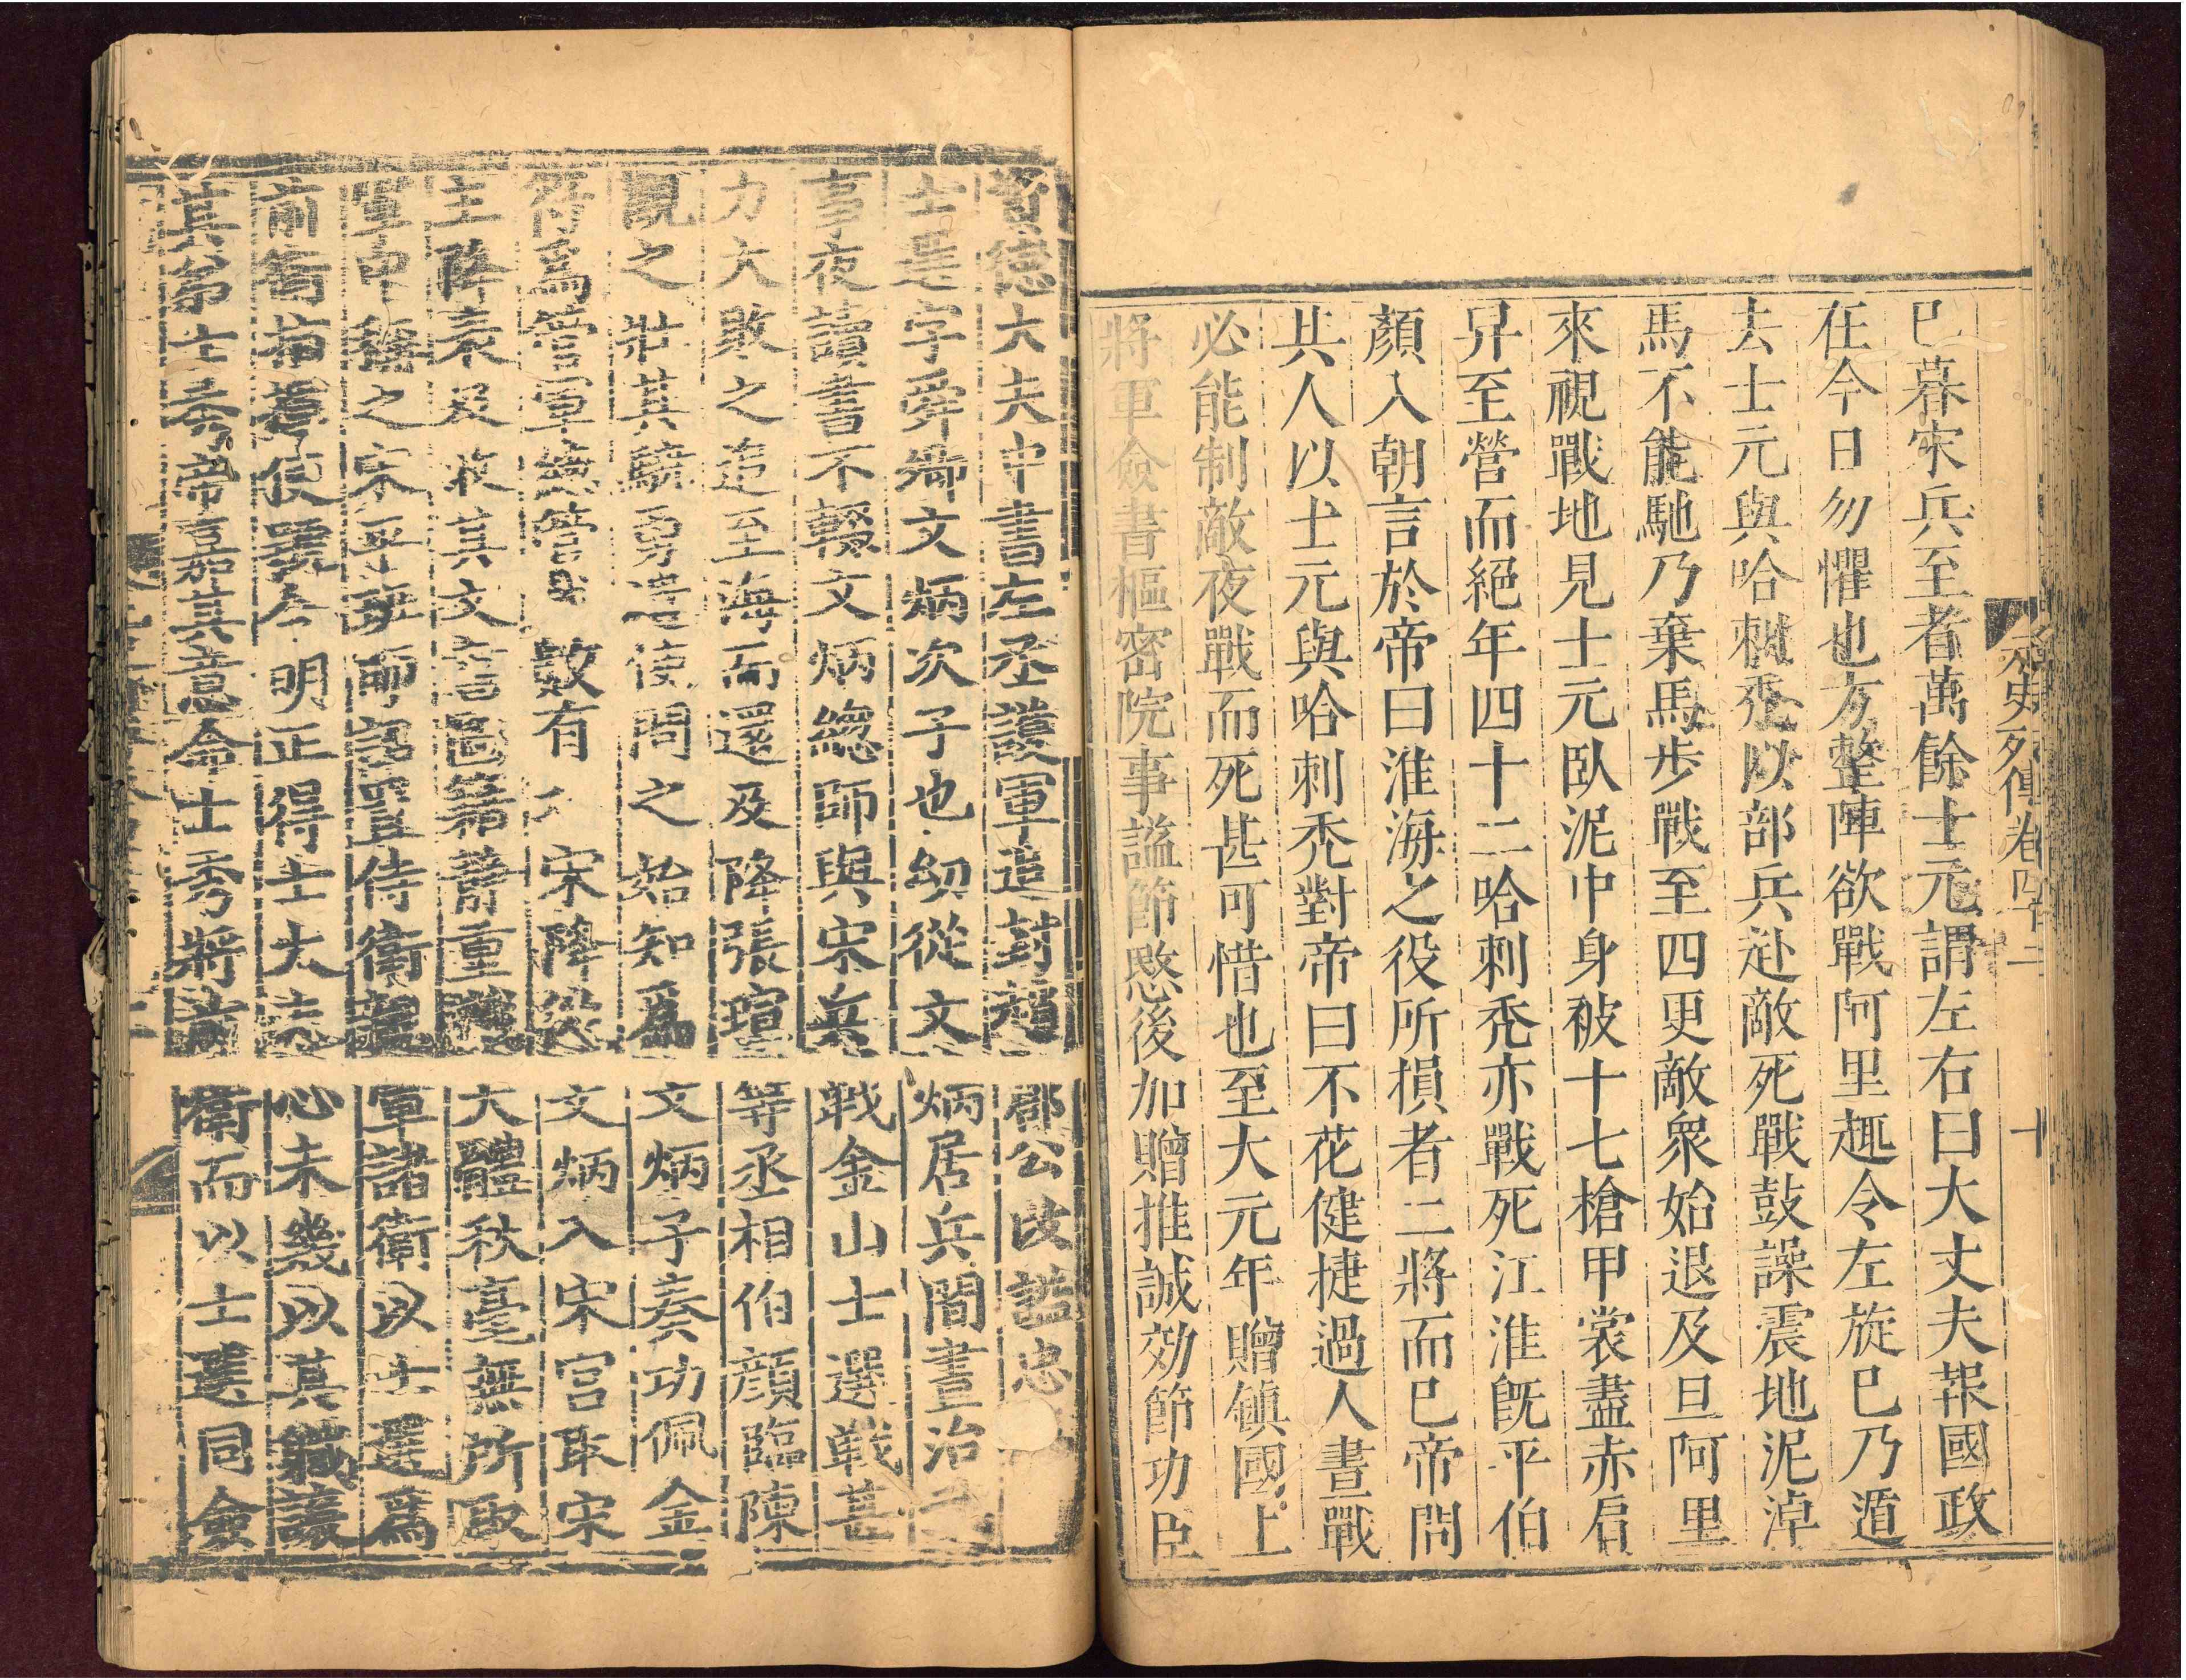 元史列傳卷四十二
十
已暮宋兵至者萬餘士元謂左右曰大丈夫報國政
在今日勿懼也方整陣欲戰阿里趣令左旋已乃遁
去士元與哈剌禿以部兵赴敵死戰鼓譟震地泥淖
馬不能馳乃棄馬步戰至四更敵衆始退及旦阿里
來視戰地見士元臥泥中身被十七槍甲裳盡赤肩
舁至營而絕年四十二哈剌禿亦戰死江淮旣平伯
顏入朝言於帝曰淮海之役所損者二將而已帝問
其人以士元與哈剌禿對帝曰不花健捷過人晝戰
必能制敵夜戰而死甚可惜也至大元年贈鎮國上
將軍僉書樞密院事謚節愍後加贈推誠効節功臣
資德大夫中書左丞護軍追封趙郡公改謚忠
士選字舜卿文炳次子也幼從文炳居兵間晝治
事夜讀書不輟文炳總師與宋兵戰金山士選戰甚
力大敗之追至海而還及降張瑄等丞相伯顏臨陳
觀之壯其驍勇遣使問之始知爲文炳子奏功佩金
符爲管軍總管 數有 宋降從文炳入宋宮取宋
主降表及收其文書圖籍靜重識大體秋毫無所取
軍中稱之宋平班師詔置侍衛親軍諸衛以士選爲
前衛指揮使號令明正得士大夫心未幾以其職讓
其弟士秀帝嘉其意命士秀將前衛而以士選同僉